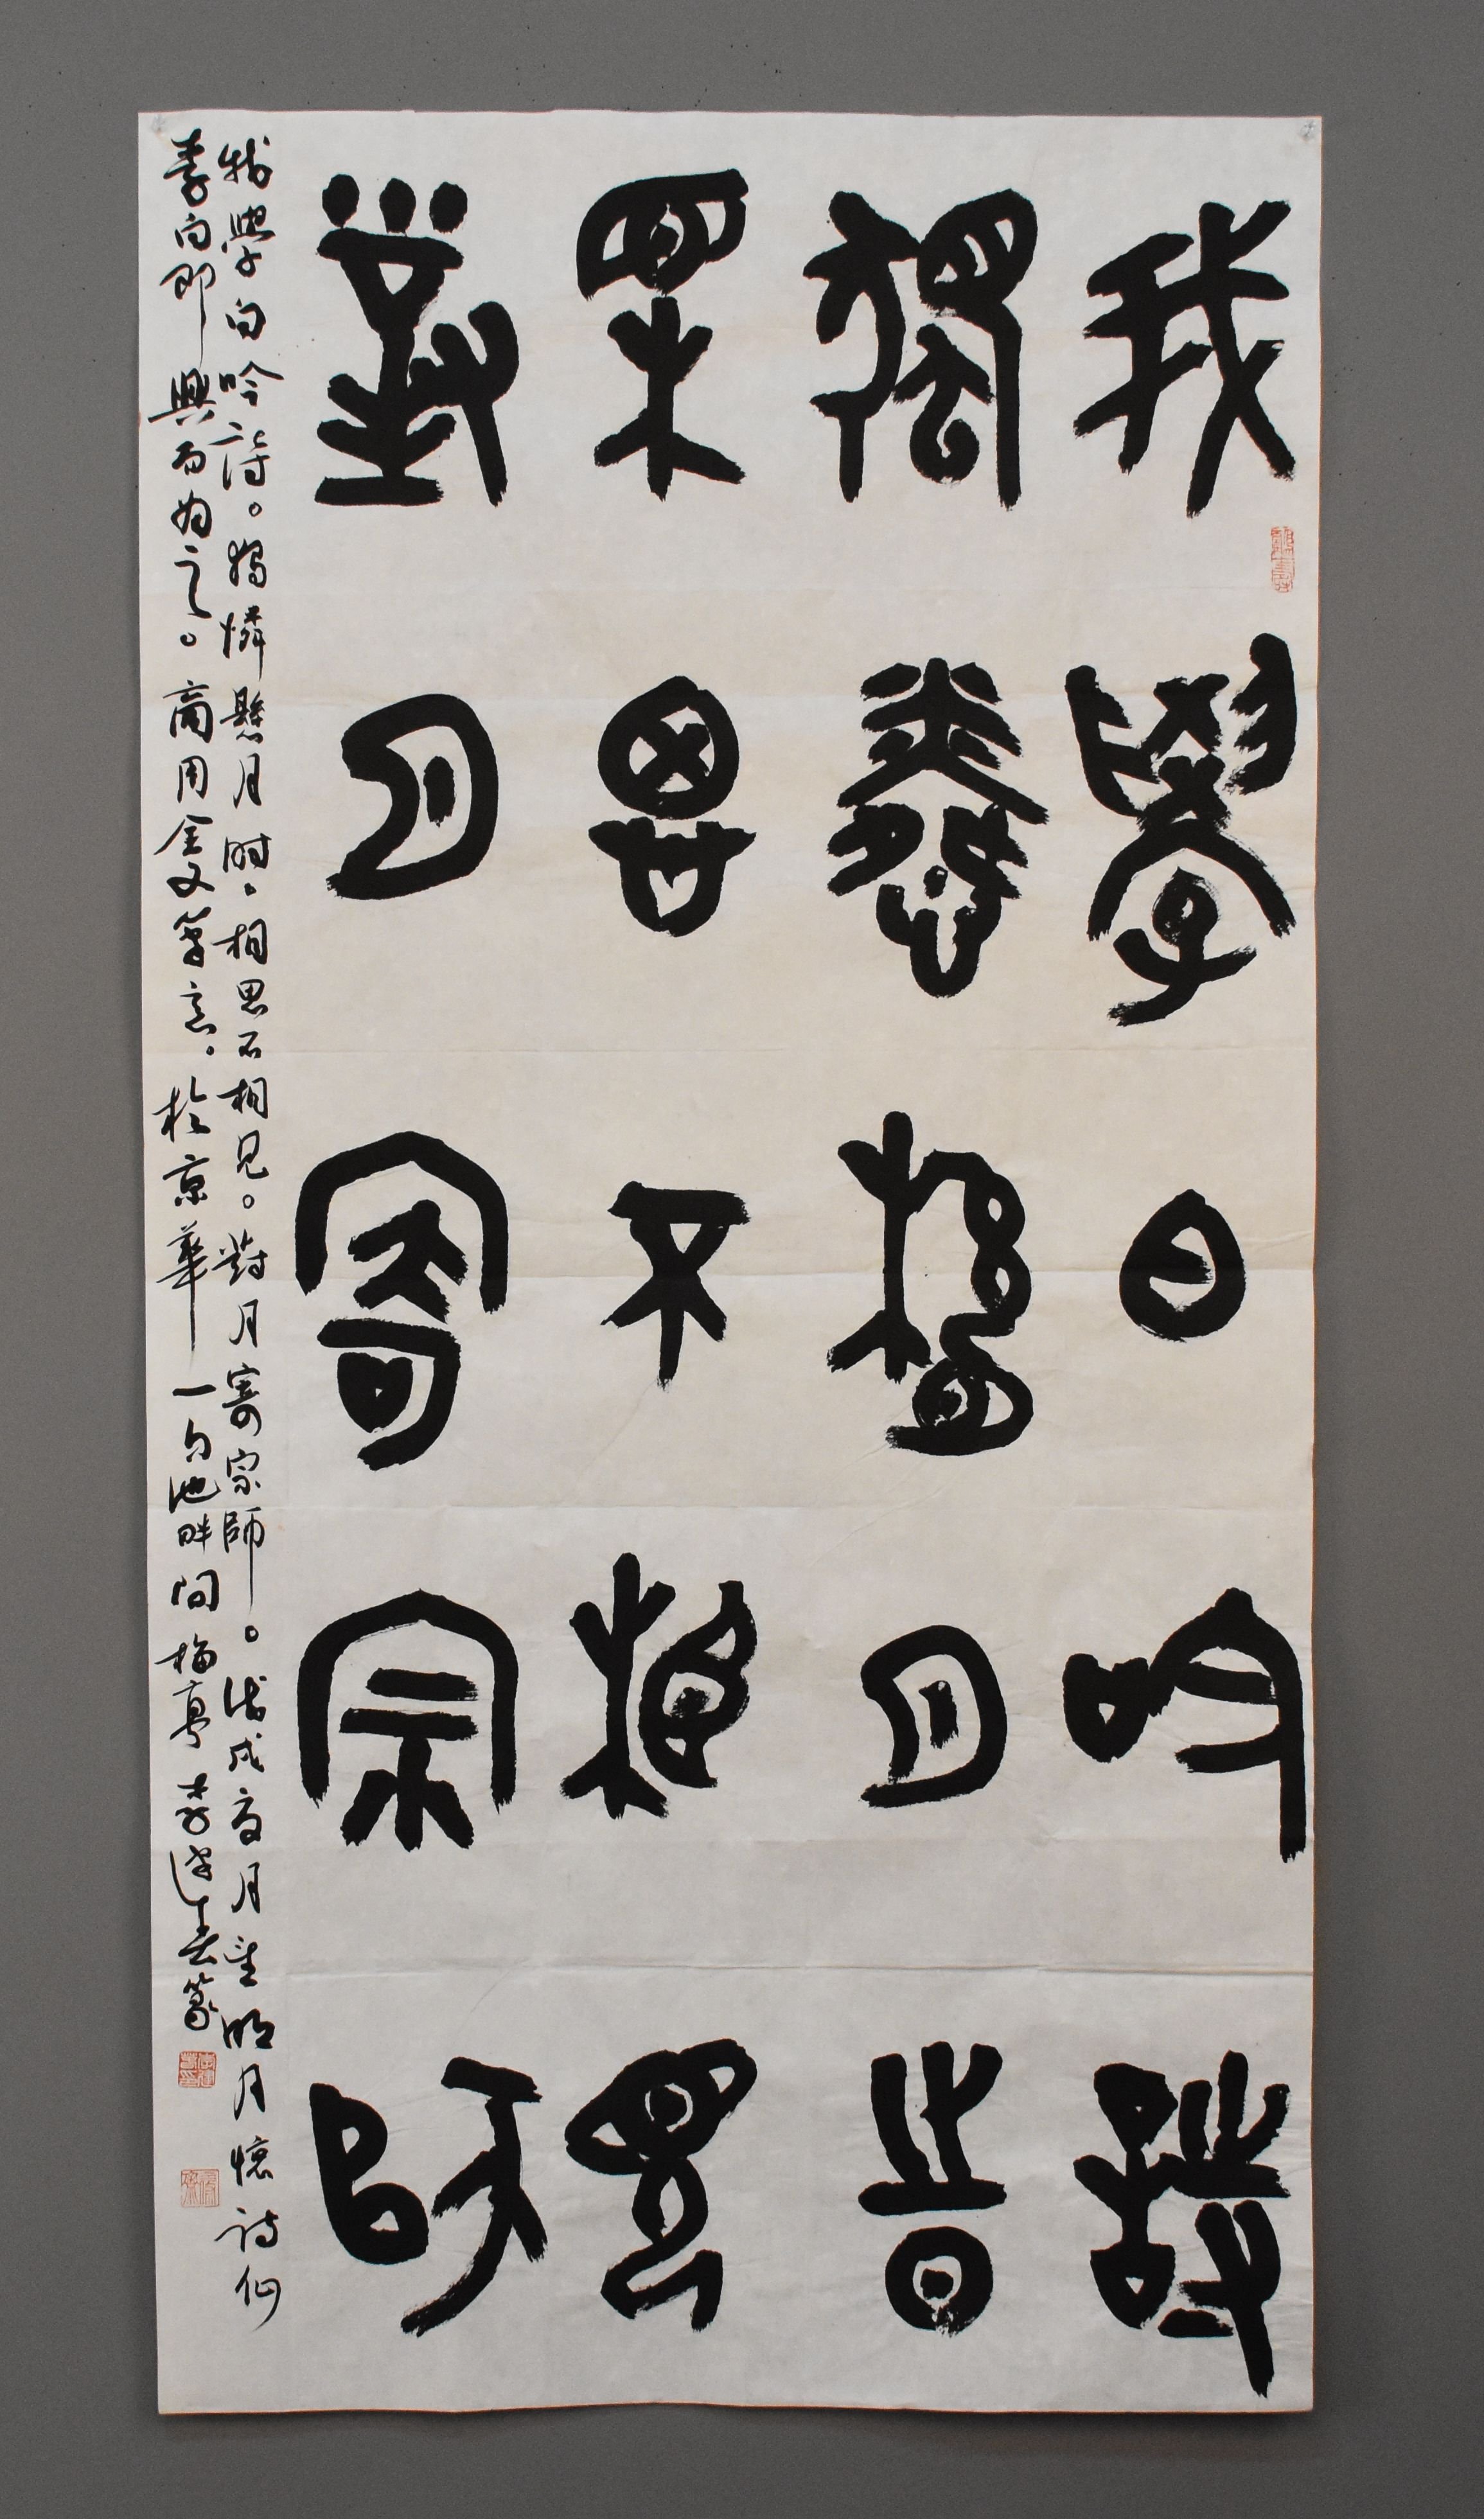 我學白吟詩
獨憐懸月時
相思不相見
對月寄宗師
我學白吟詩。獨憐懸月時。相思不相見。對月寄宗師。戊戌夏月望明月懷詩仙
李白即興而為之。商周金文筆意。於京華一勺池畔問梅亭 李篆